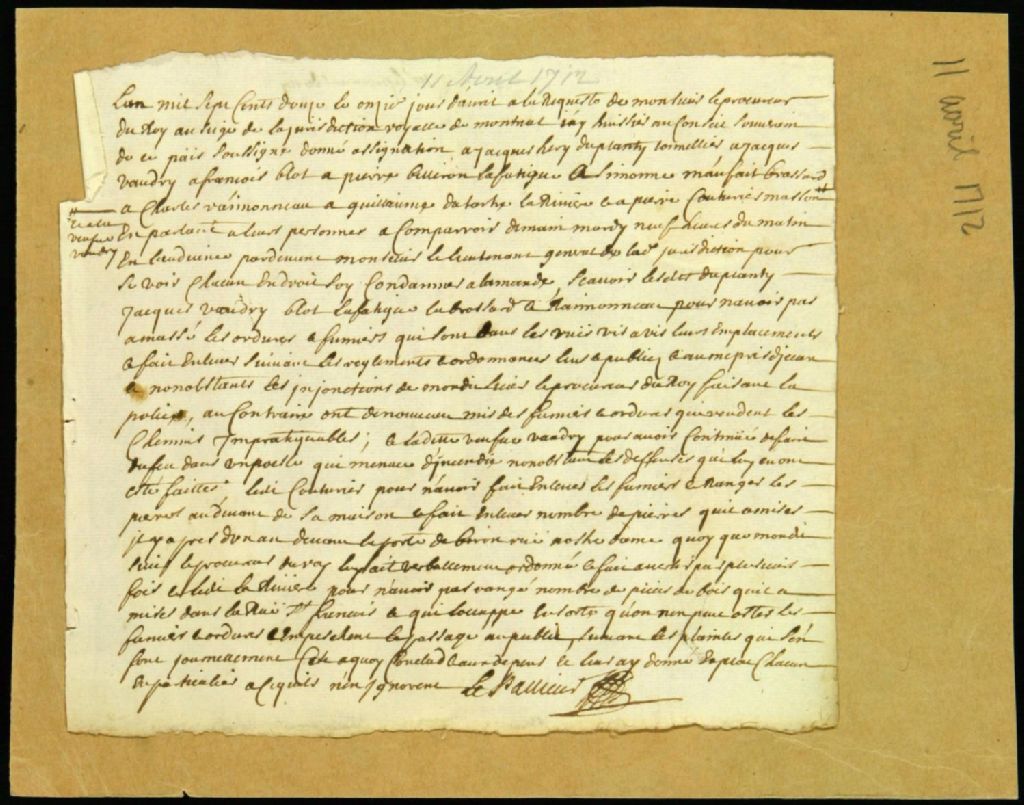 11 Avril 1712
11 avril 1712
Lan mil sept Cents douze le onzie jour davril a la Requeste de monsieur le procureur
du Roy au siege de la jurisdiction royalle de montreal jay huissier au Conseil souverain
de ce païs soussigné donné assignation a jacques hery duplanty tonnellier a jacques
vaudry a francois blot a pierre billeron lafatigue a simonne maufait brassard
a Charles raimonneau a guillaume la Riviere & a pierre Couturier masson //
// & a la veufve vaudry
En parlant a leurs personnes a Comparroir demain mardy neuf heures du matin
En laudience pardevant monsieur le lieutenant general de lad jurisdiction pour
se voir Chacun En droit soy Condanner a lamande, scavoir lesdits duplanty
Jacques vaudry blot lafatigue la brossard & Raimonneau pour navoir pas
amassé les ordures & fumiers qui sont dans les rues vis a vis leurs Emplacements
& fait Enlever suivant les reglements & ordonnances lues & publiez
& nonobstants les injonctions de mondit sieur le procureur du Roy faisant la
police, au Contraire ont de nouveau mis des fumiers & ordures qui rendent les
Chemins Impratiquables; & ladite veufve vaudry pour avoir Continué de faire
du feu dans un poesle qui menace dincendie nonobstant les deffenses qui luy en ont
esté faittes. ledit Couturier pour navoir fait Enlever les fumiers & Ranger les
pierres au devant de sa maison & fait Enlever nombre de pierres quil a mises
au devant le porte de rue nostre dame quoy que mondit
sieur le procureur du roy layt verballement ordonné & fait avertir par plusieurs
fois & ledit la Riviere pour navoir pas rangé nombre de pieces de bois quil a
mises dans la Rue St francois & qui loccuppe de sorte quon nen peut oster les
fumiers & ordures & Empeschent le passage au public, suivant les plaintes qui sen
font journellement Cest a quoy Conclud & aux depens & leur ay donné Copie Chacun
separement a Ce quils nen Ignorent Le Pallieur